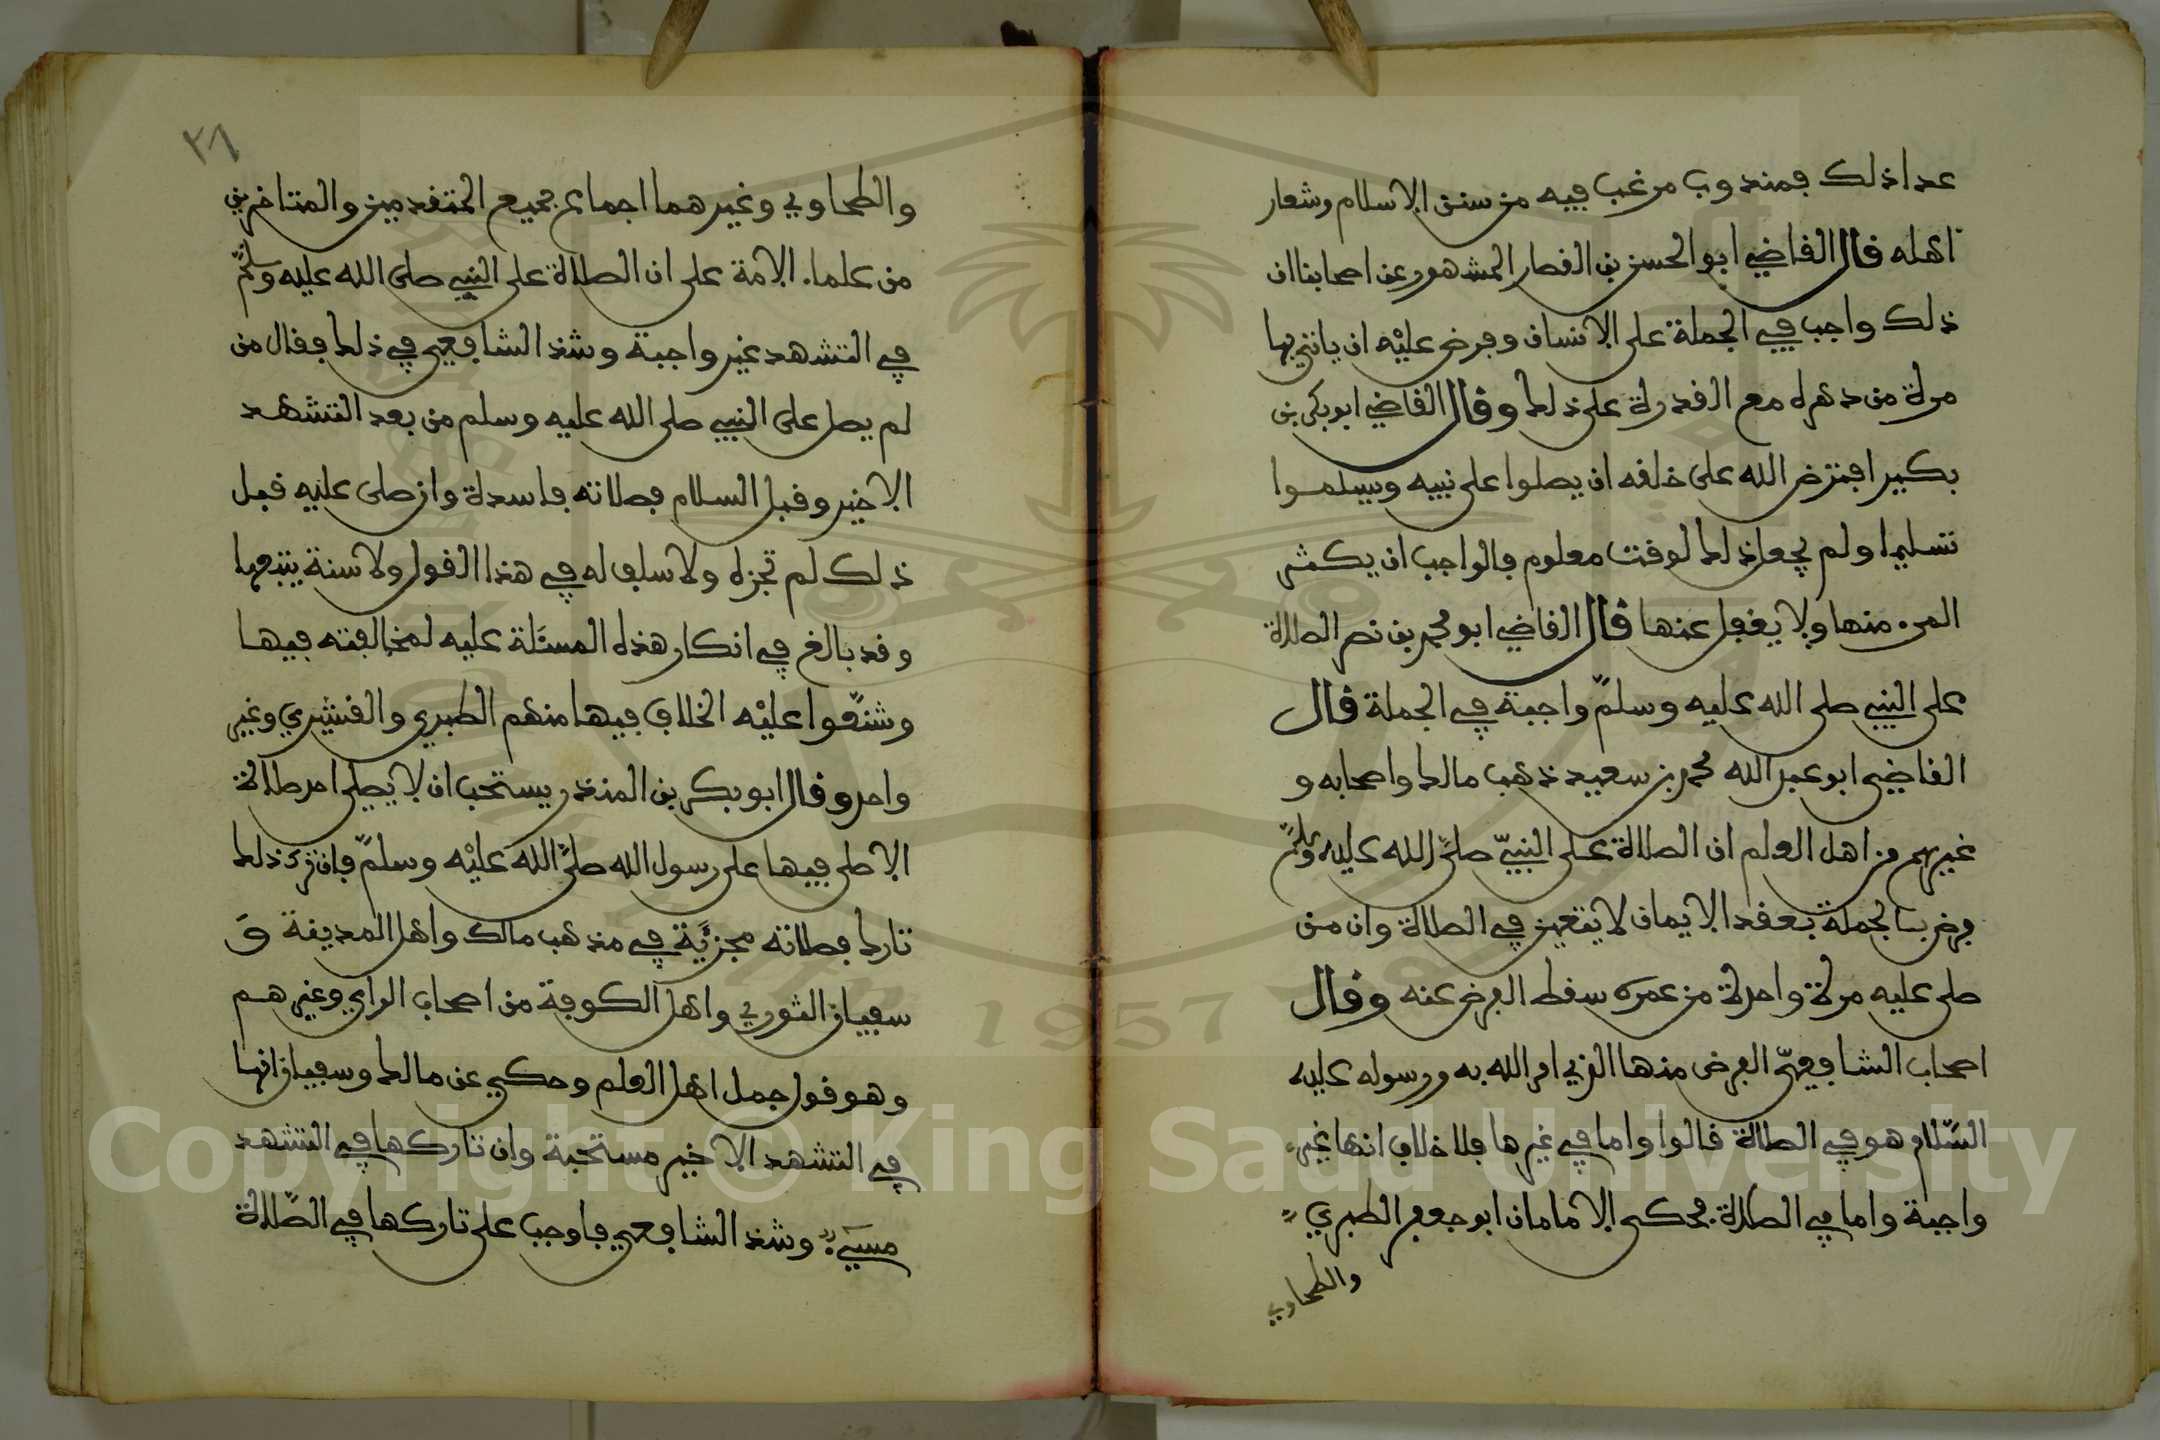 عدا ذلك فمندوب مرغب فيه من سنن الاسلام وشعار
اهله قال القاضي ابو الحسن بن القصار المشهور عن اصحابنا ان
ذلك واجب في الجملة على الانسان وفرض عليه ان ياتي بها
مرة من دهره مع القدرة على ذلك وقال القاضي ابو بكر بن
بكير افترض الله على خلقه ان يصلوا على نبيه ويسلموا
تسليما ولم يجعل ذلك لوقت معلوم فالواجب ان يكثر
المرء منها ولا يغفل عنها قال القاضي ابو محمد بن نصر الصلاة
على النبي صلى الله عليه وسلم واجبة في الجملة قال
القاضي ابو عبد الله محمد بن سعيد ذهب مالك واصحابه و
غيرهم من اهل العلم ان الصلاة على النبي صلى الله عليه وسلم
فرض بالجملة بعقد الايمان لا يتعين في الصلاة وان من
صلى عليه مرة واحدة من عمره سقط الفرض عنه وقال
اصحاب الشافعي الفرض منها الذي امر الله به ورسوله عليه
السلام هو في الصلاة قالوا واما في غيرها فلا خلاف انها غير
واجبة واما في الصلاة فحكى الامامان ابو جعفر الطبري
والطحاوي
٣٦
والطحاوي وغيرهما اجماع جميع المتقدمين والمتاخرين
من علماء الامة على ان الصلاة على النبي صلى الله عليه وسلم
في التشهد غير واجبة وشذ الشافعي في ذلك فقال من
لم يصل على النبي صلى الله عليه وسلم من بعد التشهد
الاخير وقبل السلام فصلاته فاسدة وان صلى عليه قبل
ذلك لم تجزه ولا سلف له في هذا القول ولا سنة يتبعها
وقد بالغ في انكار هذه المسئلة عليه لمخالفته فيها
وشنعوا عليه الخلاف فيها منهم الطبري والقشيري وغير
واحد وقال ابو بكر بن المنذر يستحب ان لا يصلى احد صلاة
الا صلى فيها على رسول الله صلى الله عليه وسلم فان ترك ذلك
تارك فصلاته مجزية في مذهب مالك واهل المدينة و
سفيان الثوري واهل الكوفة من اصحاب الراي وغيرهم
وهو قول جمل اهل العلم وحكي عن مالك وسفيان انها
في التشهد الاخير مستحبة وان تاركها في التشهد
مسيء وشذ الشافعي فاوجب على تاركها في الصلاة
Copyright © King Saud University
1957